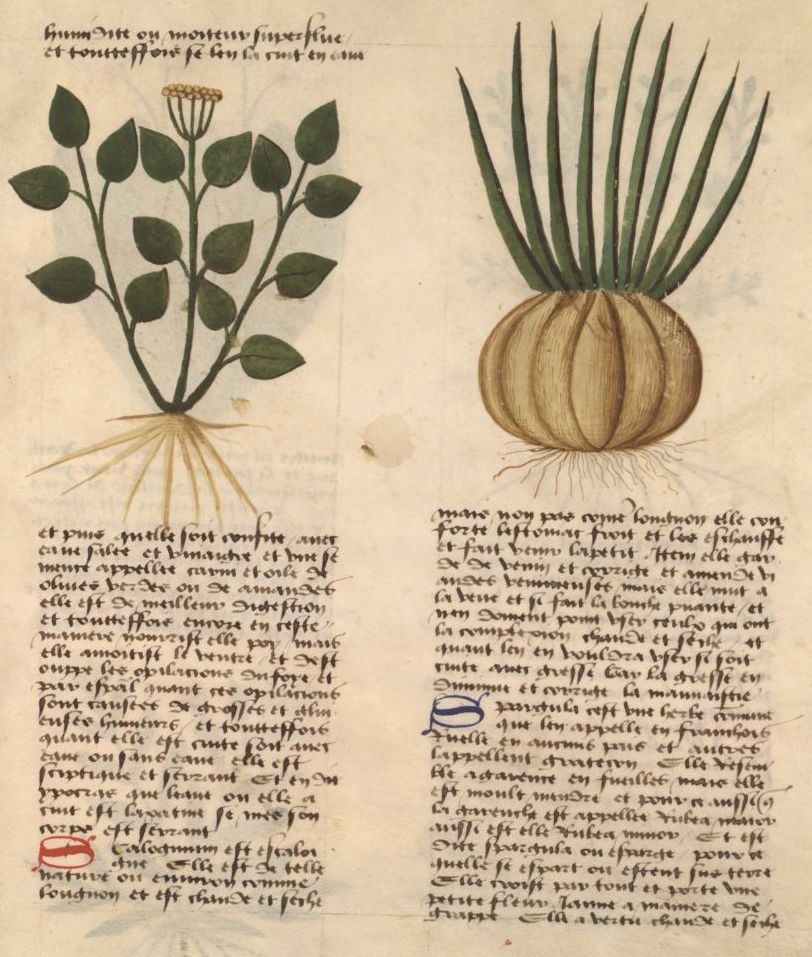 humidite ou moiteur superflue
et touttesfois se len la cuit en eaue
et puis quelle soit confite avec
eaue salee et vinaigre et une se
mence appellee carvi et oile de
olives verdes ou de amandes
elle est de meilleur digestion
et touttesfois encore en ceste
maniere nourrist elle poy mais
elle amoitist le ventre et dest
ouppe les opilacions du foye et
par espal quant ces opilacions
sont causees de grosses et glui
euses humeurs et touttesfois
quant elle est cuite soit avec
eaue ou sans eaue elle est
sciptique et servant Et en dit
ypocras que leaue ou elle a
cuit est laxative se mes son
corps est servant
Scalognum est escaloi
gne Elle est de telle
nature ou environ comme
lougnon et est chaude et seche
mais non pas come lougnon elle con
forte lestomac froit et les eschauffe
et fait venir lapetit Item elle gar
de de venin et corrige et amende vi
andes venimeuses mais elle nuit a
la veue et si fait la bouche puante et
nen doivent point user ceulx qui ont
la complexion chaude et seche et
quant len en vouldra user si soit
cuite avec gresse car la gresse en
diminue et corrige la mauvaistie
Spargula cest une herbe comune
que len appelle en franchois
Ruelle en aucuns pais et autres
lappellent grateron Elle resem
ble a garence en fueilles mais elle
est moult mendre et pource aussi q
la garenche est appellee Rubea maior
aussi est elle Rubea minor Et est
dite spargula ou esparge pour ce
quelle se espart ou estent sus terre
Elle croist par tout et porte une
petite fleur Jaune a maniere de
grappe Elle a vertu chaude et seche